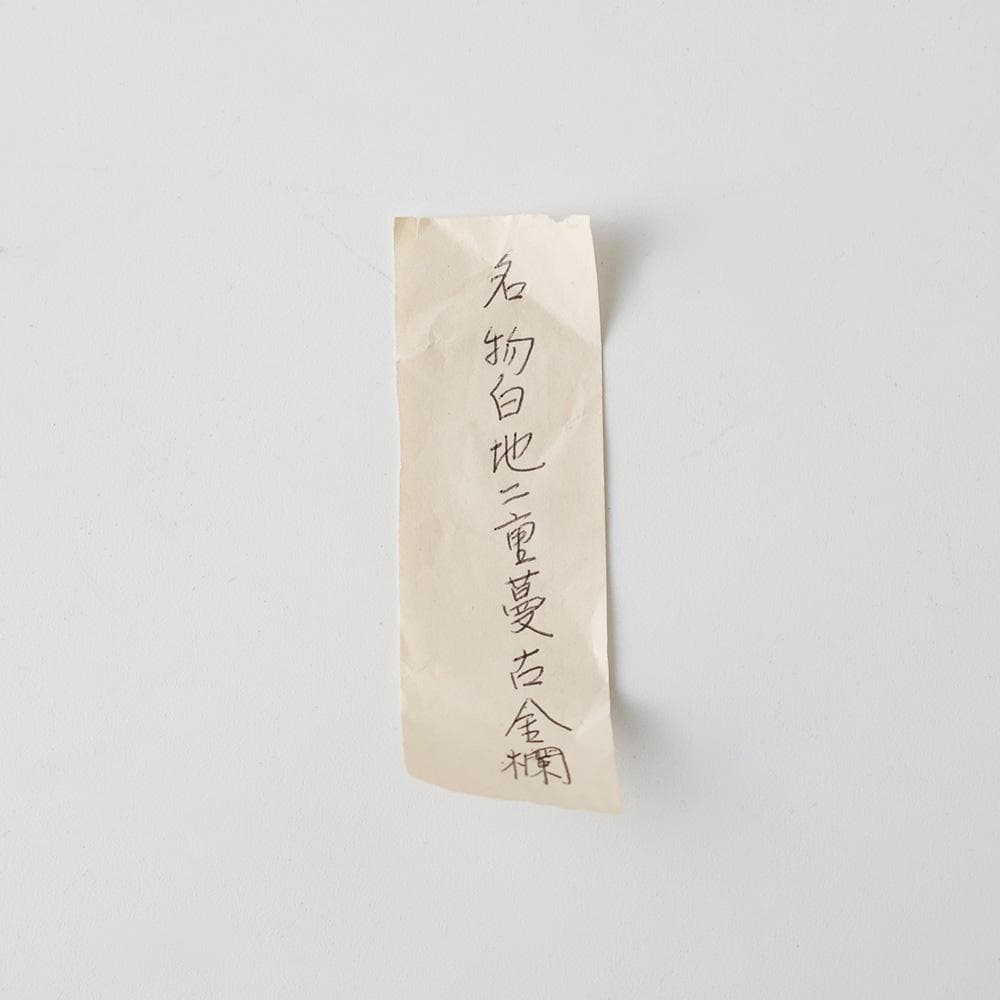 名物白地二重蔓古金欄